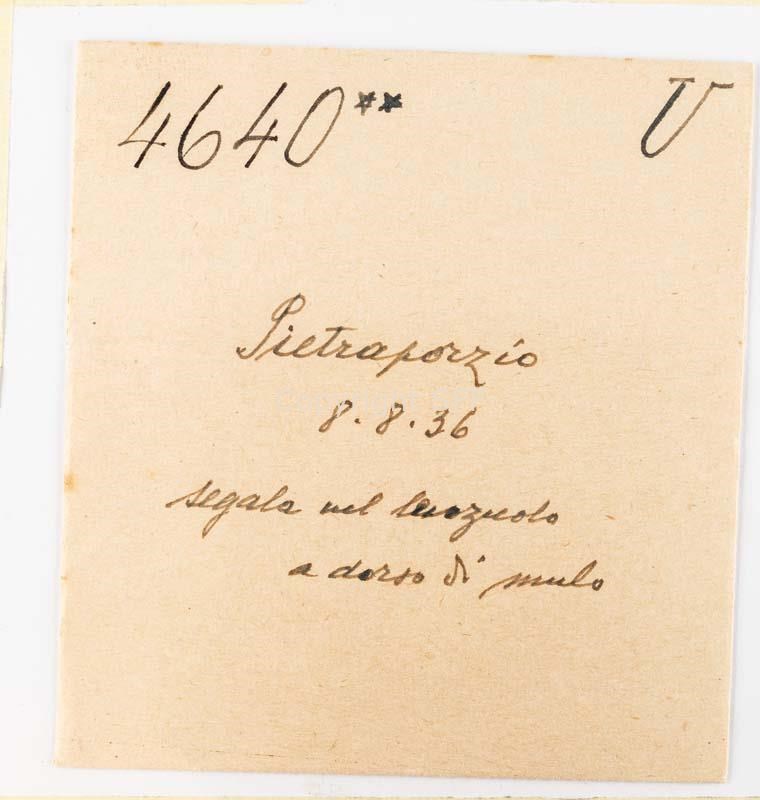 4640** U
Pietraporzio
8.8.36
segala nel lenzuolo
a dorso di mulo